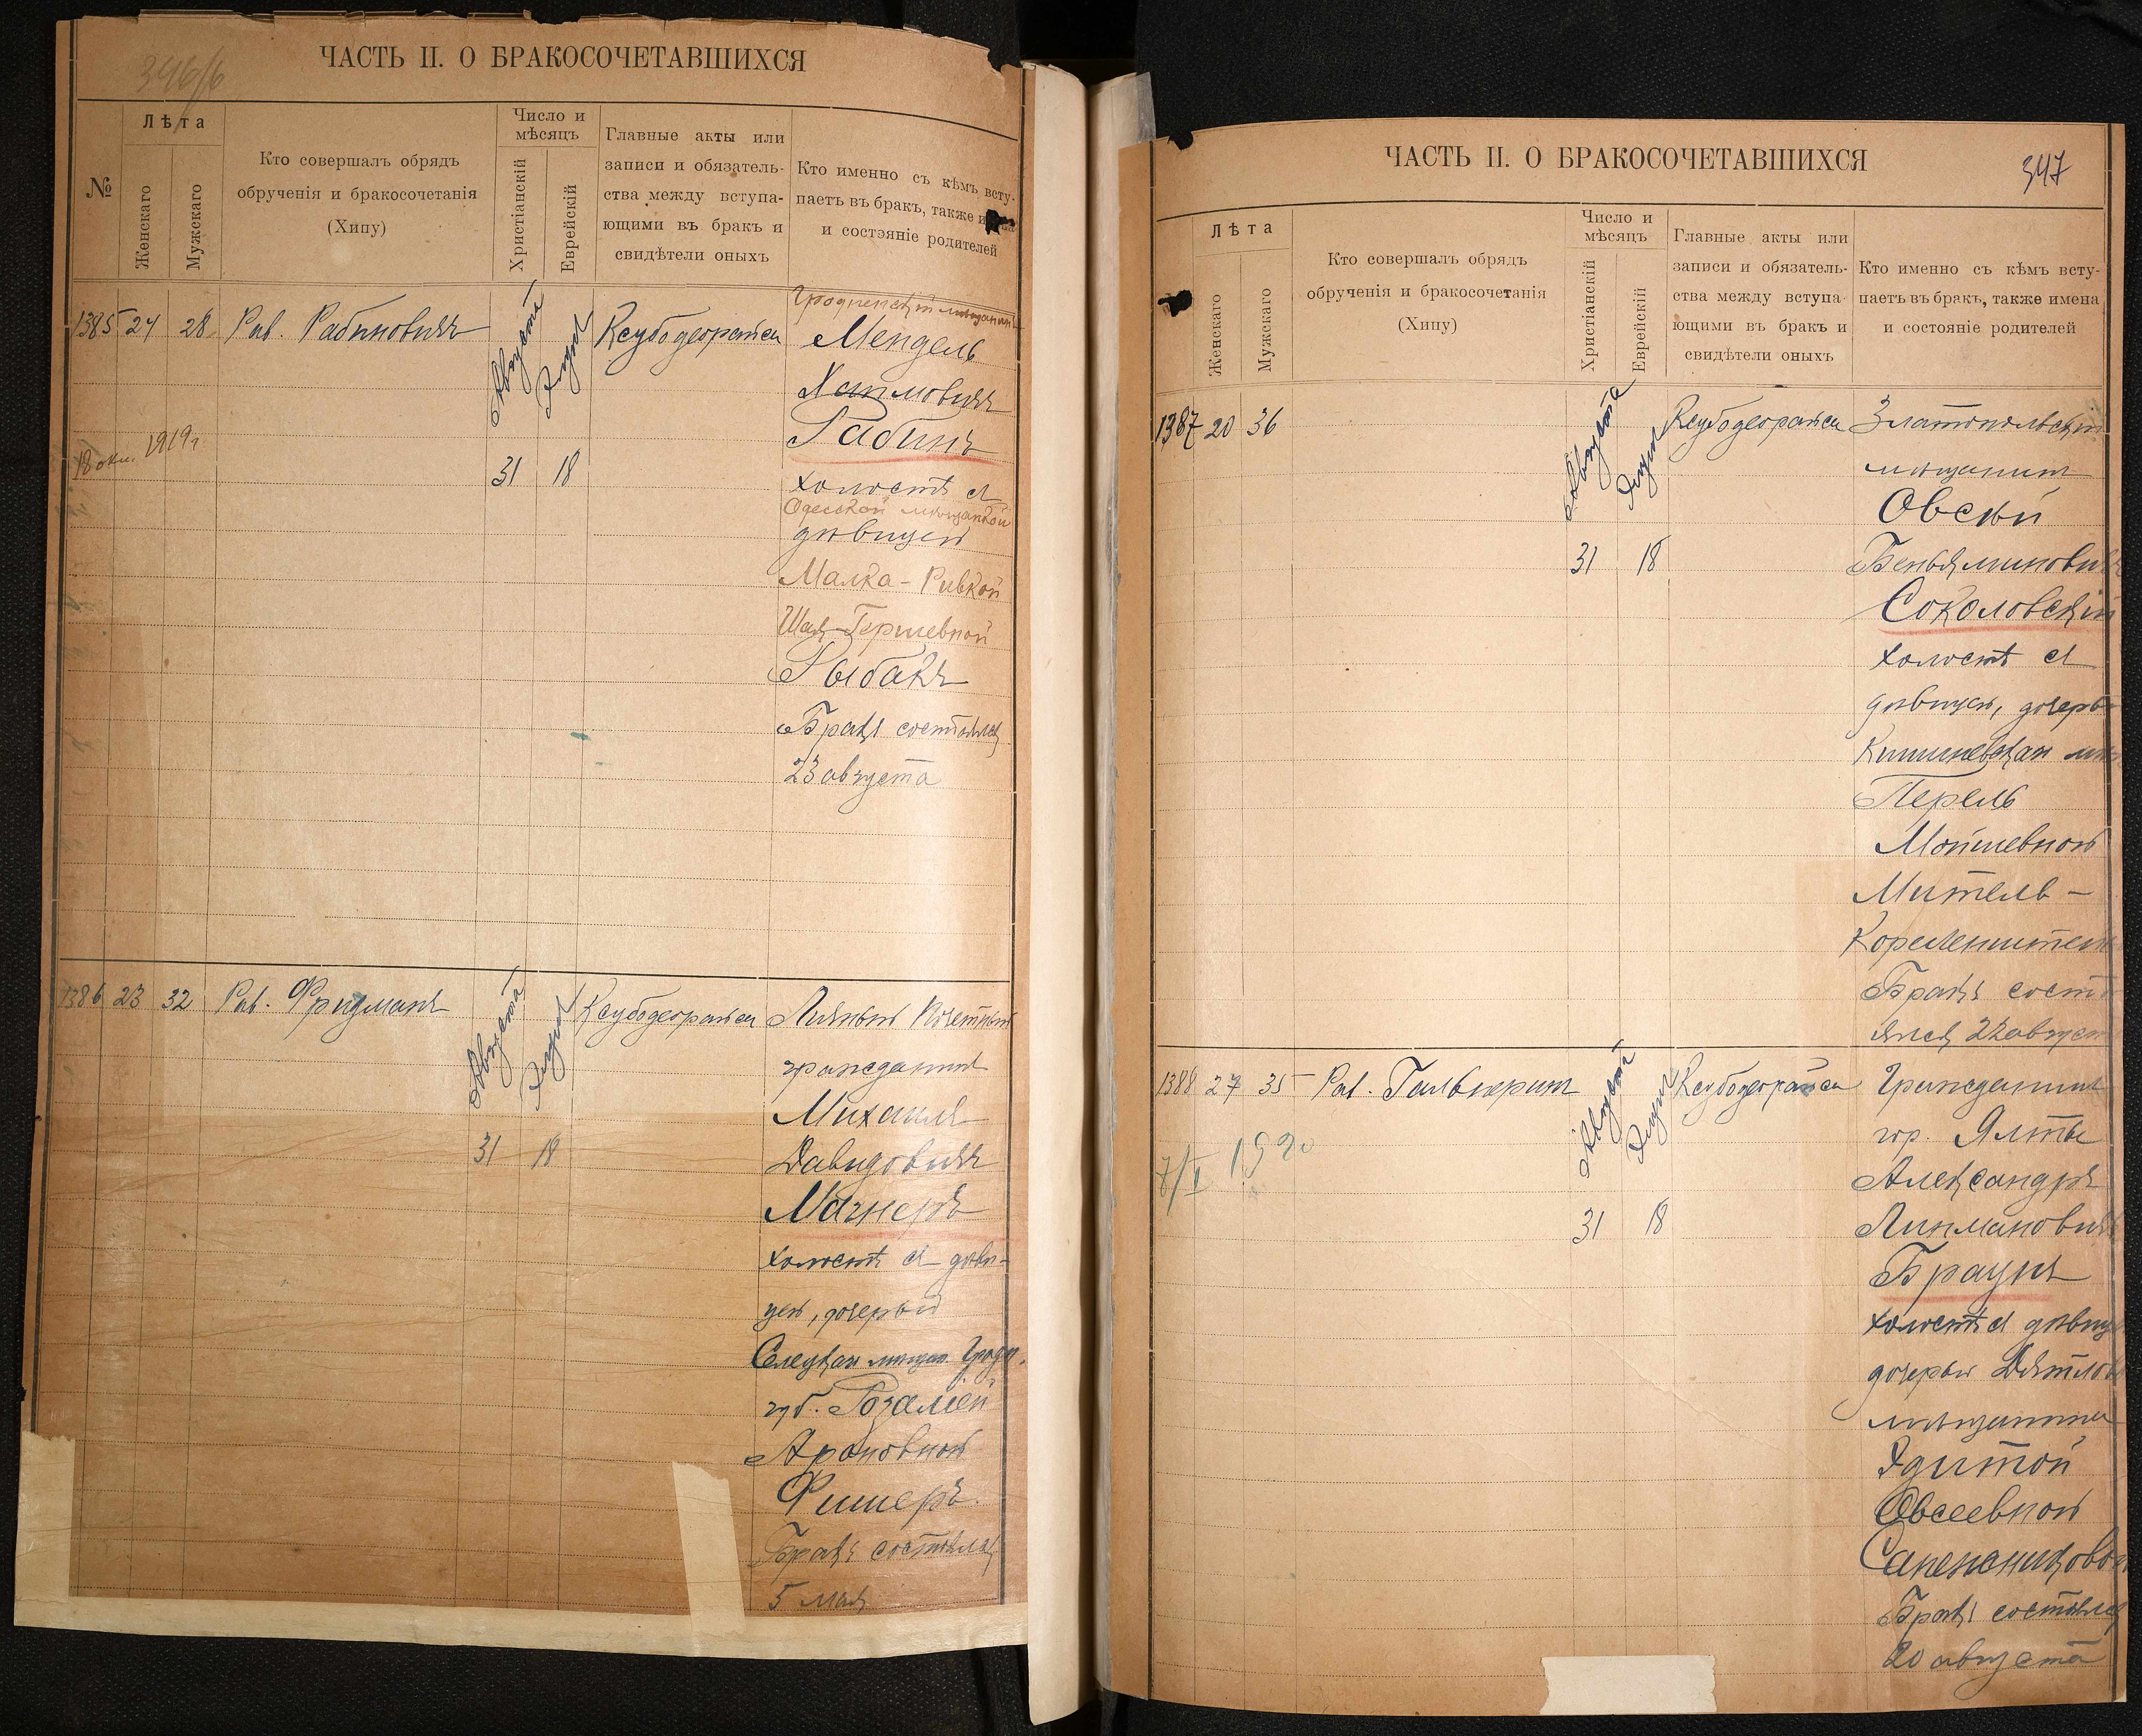 346/б
ЧАСТЬ II. О БРАКОСОЧЕТАВШИХСЯ
№
Лѣта
Женскаго
Мужскаго
Кто совершалъ обрядъ
обрученія и бракосочетанія
(Хипу)
Число и
мѣсяцъ
Христіанскій
Еврейскій
Главные акты или
записи и обязатель-
ства между вступа-
ющими въ бракъ и
свидѣтели оныхъ
Кто именно съ кѣмъ всту-
паетъ въ бракъ, также
и состояніе родителей
1385 24 28 Рав. Рабиновичъ
Августа
Элула
31 18
Ксубодеорайса
Гродненскій мѣщанинъ
Мендель
Хаимовичъ
Рабинъ
холостъ съ
Одесской мѣщанкой
дѣвицей
Малка-Ривкой
Шая-Гершевной
Рыбакъ
Бракъ состоялся
23 августа
18 окт. 1919 г
1386 23 32 Рав. Фридманъ
Августа
Элула
31 18
Ксубодеорайса
Личный Почетный
гражданинъ
Михаилъ
Давидовичъ
Магнеръ
холостъ съ дѣви-
цей, дочерью
мѣщан. Гродн.
губ. Розалiей
Ароновной
Фишеръ.
Бракъ состоялся
5 мая
ЧАСТЬ II. О БРАКОСОЧЕТАВШИХСЯ
347
Лѣта
Женскаго
Мужскаго
Кто совершалъ обрядъ
обрученія и бракосочетанія
(Хипу)
Число и
мѣсяцъ
Христіанскій
Еврейскій
Главные акты или
записи и обязатель-
ства между вступа-
ющими въ бракъ и
свидѣтели оныхъ
Кто именно съ кѣмъ всту-
паетъ въ бракъ, также имена
и состояніе родителей
1387 20 36
Августа
Элула
31 18
Ксубодеорайса
Златопольскій
мѣщанин
Овсѣй
Беньяминовичъ
Соколовскій
холостъ съ
дѣвицей, дочерью
Кишиневскаго мѣщ
Перель
Мойшевной
Митель-
Корсенштейн
Бракъ состо
ялся 22 август
1388 27 35 Рав. Гальперин
Августа
Элула
31 18
Ксубодеорайса
Гражданинъ
гор. Ялты
Александръ
Липмановичъ
Браунъ
холостъ съ дѣвицей
дочерью
мѣщанина
Эдитой
Овсеевной
Сапежниковой
Бракъ состоялся
20 августа
7/I 1920